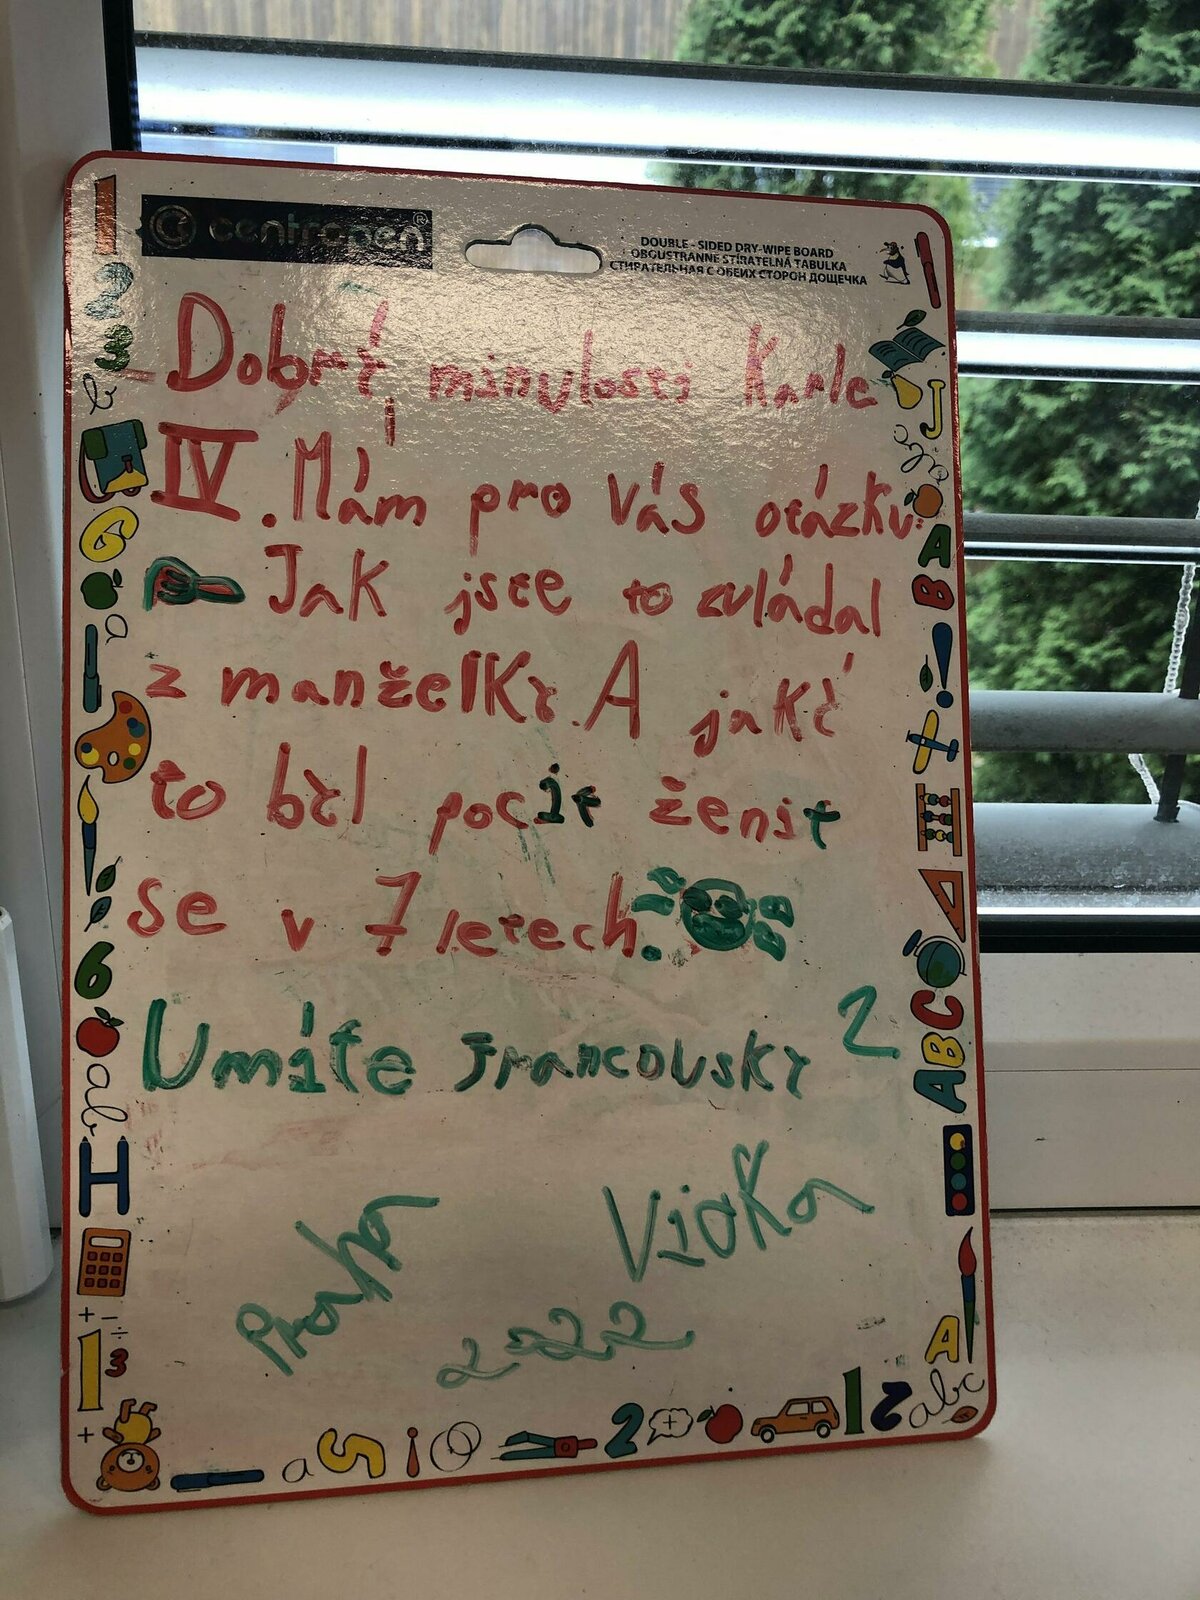 centropen®
DOUBLE - SIDED DRY-WIPE BOARD
OBOUSTRANNĚ STÍRATELNÁ TABULKA
СТИРАТЕЛЬНАЯ С ОБЕИХ СТОРОН ДОЩЕЧКА
Dobrý minulosti Karle
IV. Mám pro vás otázku:
Jak jste to zvládal
z manželky. A jaký
to byl pocit ženit
se v 7 letech.
Umíte francousky ?
Praha
Viofka
2022